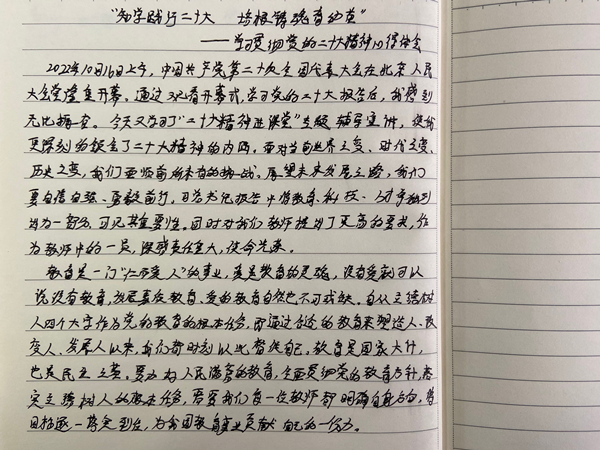 "知学践行二十大 培根铸魂育幼苗"
——学习贯彻党的二十大精神心得体会
2022年10月16日上午,中国共产党第二十次全国代表大会在北京人民
大会堂隆重开幕。通过观看开幕式,学习党的二十大报告后,我感到
无比振奋。今天又学习了"二十大精神进课堂"主题辅导宣讲,使我
更深刻的领会了二十大精神的内涵。面对当前世界之变、时代之变、
历史之变,我们要迎前所未有的挑战。展望未来发展之路,我们
要自信自强、勇毅前行。习总书记报告中将教育、科技、人才单独列
出为一部分,可见其重要性。同时对我们教师提出了更高的要求,作
为教师中的一员,深感责任重大,使命光荣。
教育是一门"仁而爱人"的事业,爱是教育的灵魂,没有爱就可以
说没有教育,发展素质教育,爱的教育自然也不可或缺。自从立德树
人四个大字作为党的教育的根本任务,要通过合适的教育来塑造人、改
变人、发展人以来,我们都时刻以此督促自己。教育是国家大计,
也是民主之基。要办好人民满意的教育,全面贯彻党的教育方针,落
实立德树人的根本任务,需要我们每一位教师都明确自身方向,将
目标逐一落实到位,为我国教育事业贡献自己的一份力。